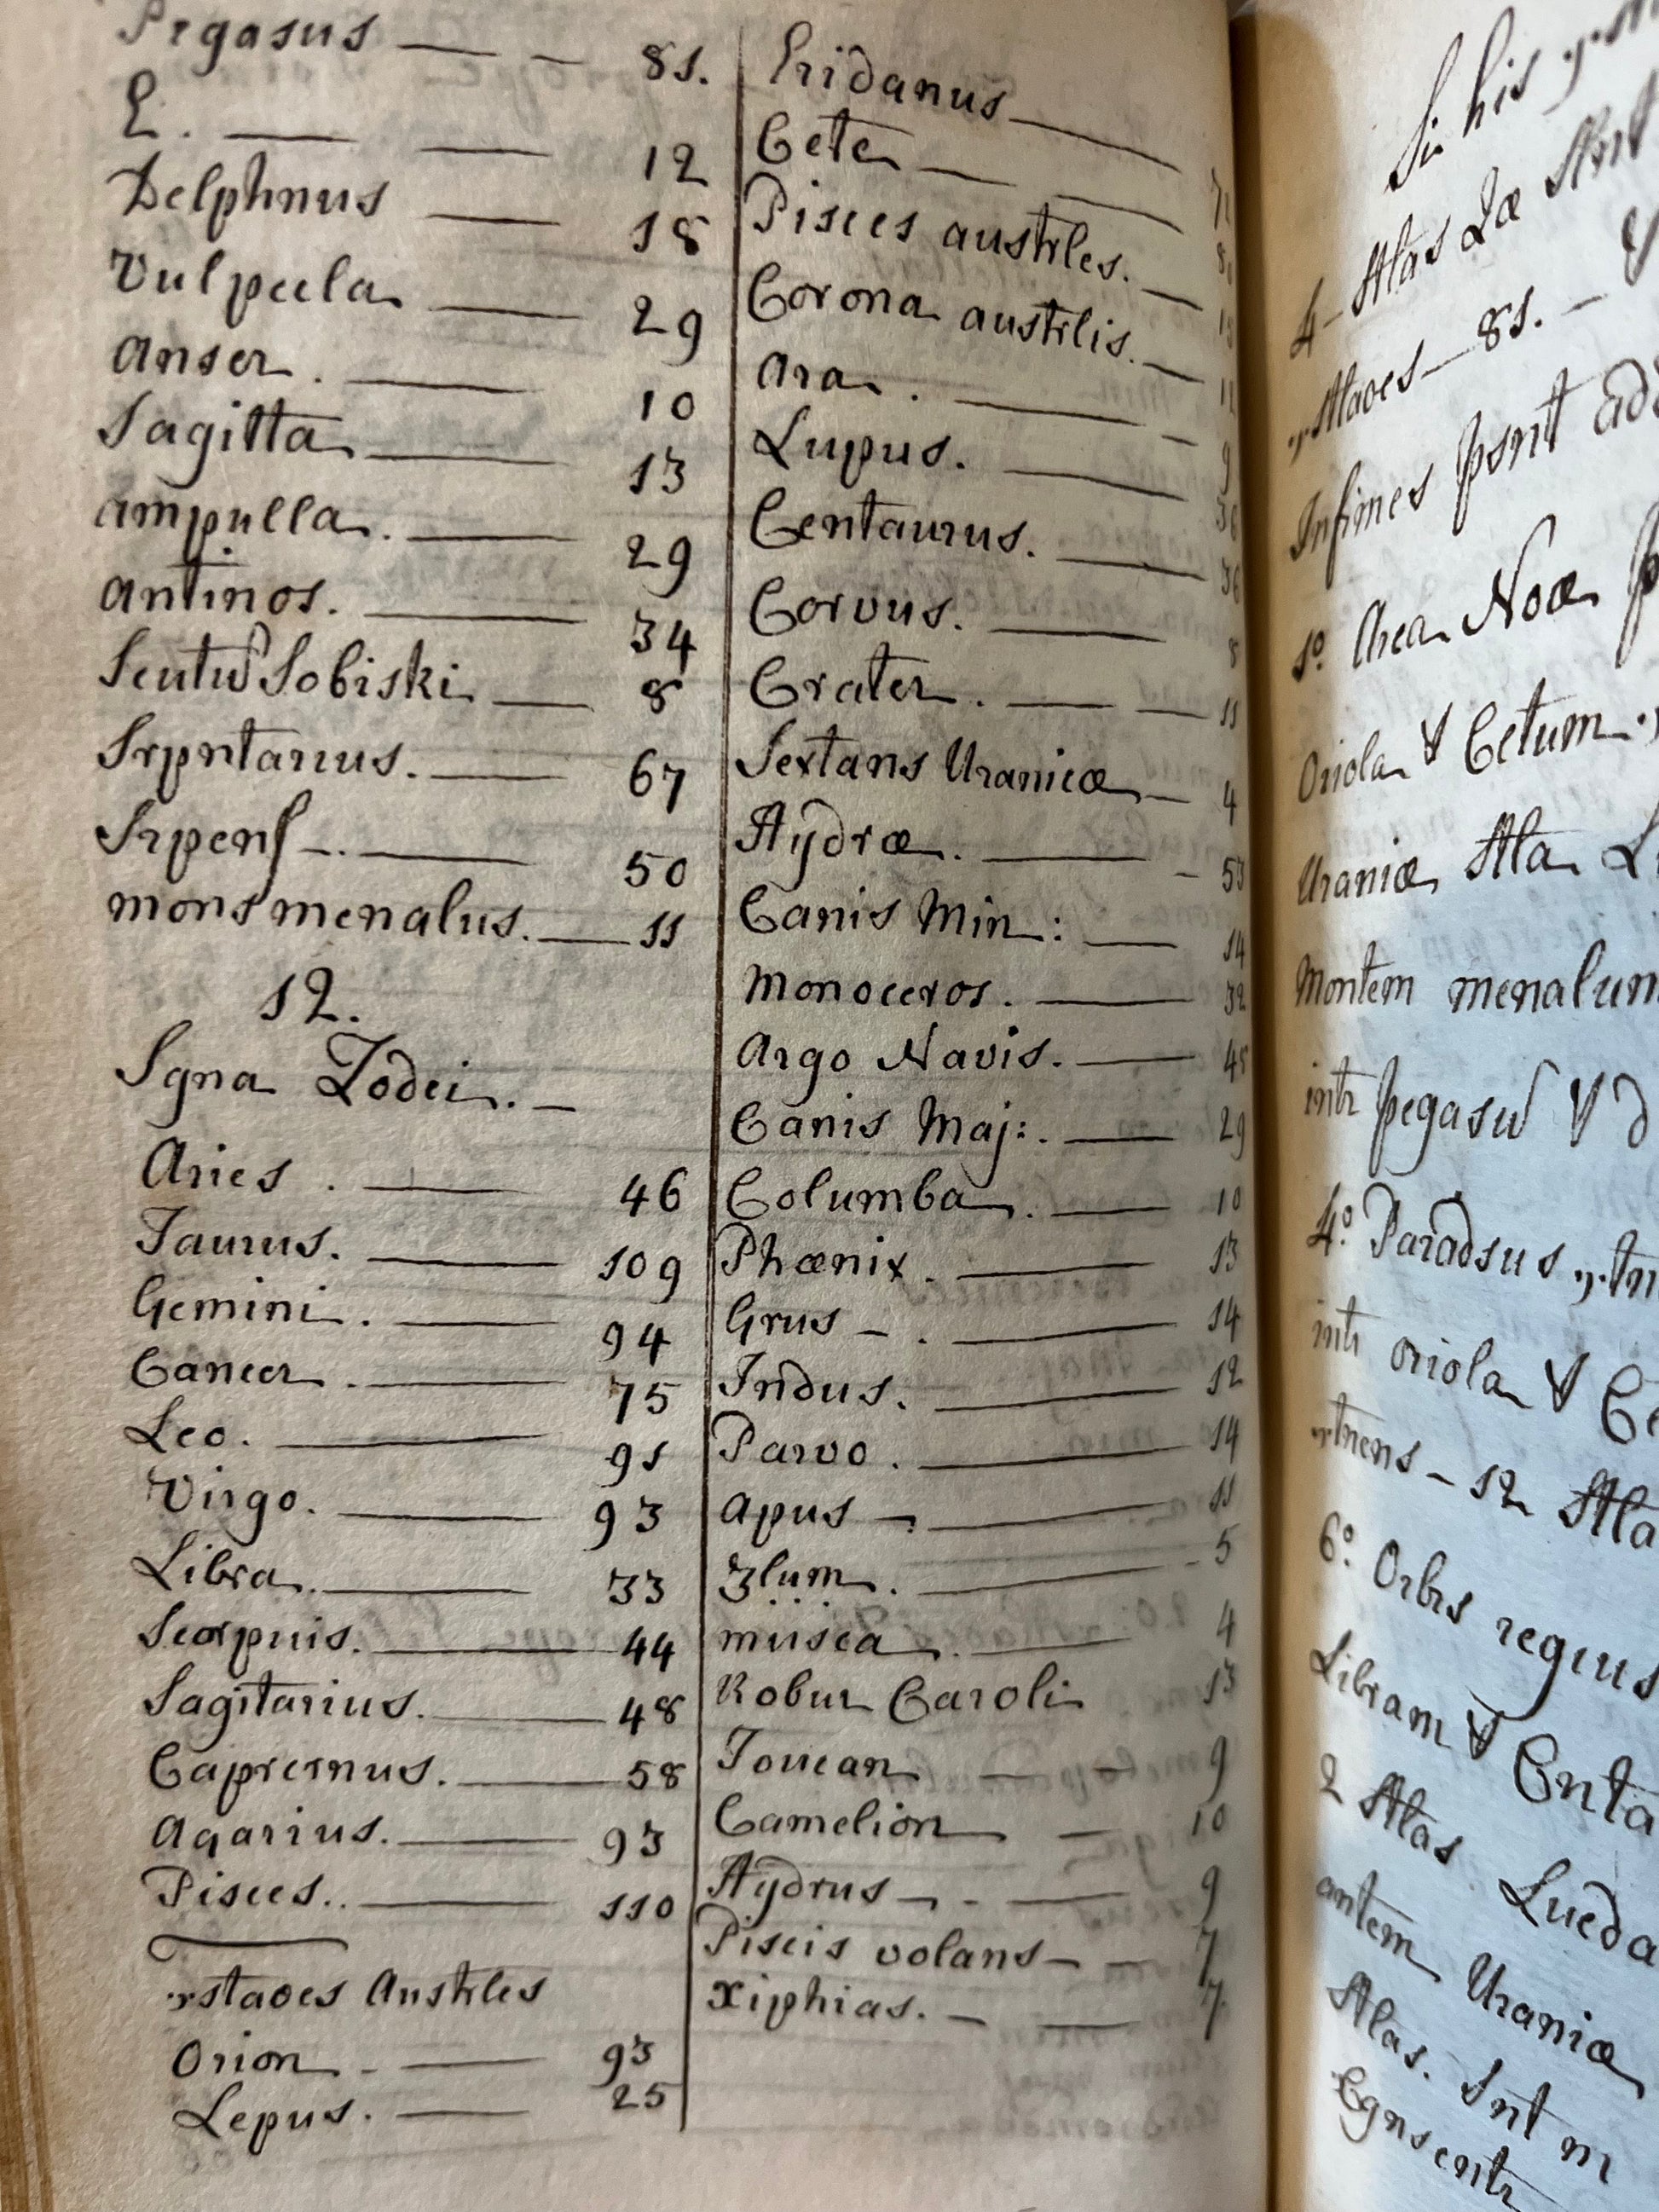 Pegasus — — 81.
E. — — 12
Delphnus — 18
Vulpecla — 29
Anser. — 10
Sagitta — 13
ampulla. — 29
Antinos. — 34
Scutũ Sobiski — 8
Srpntarius. — 67
Srpens —. — 50
mons menalus. — 11
12.
Sgna Zodci. —
Aries . — 46
Taurus. — 109
Gemini . — 94
Cancer . — 75
Leo. — 91
Virgo. — 93
Libra. — 33
Scorpuis. — 44
Sagitarius. — 48
Caprcrnus. — 58
Aqarius. — 93
Pisces.. — 110
staoes Austrles
Orion - — 93
Lepus. — 25
Eridanus —
Cete — —
Pisces austrles. —
Corona austrlis. —
Ara . — — 9
Lupus. — 36
Centaurus. — 36
Corvus. — 8
Crater . — — 11
Sextans Uranicæ — 4
Hydræ. — - 53
Canis Min: — 14
Monoceros. — 32
Argo Navis. — 48
Canis Maj: . — 29
Columba . — 10
Phœnix . — 13
Grus — . — 14
Indus. — 12
Parvo . — 14
Apus — 11
3lum . — - 5
musca . — 4
Robur Caroli 13
Toucan — - 9
Camelion — 10
Hydrus — - — 9
Piscis volans — — 7
Xiphias. — — 7
Si his
4 — Slas Læ Snt
staoes — 81. —
Infimes psnt add
1º. Arca Noæ p
Oriola & Cetum
Uraniæ Sla
Montem menalum
intr pegasũ & d
4º. Paradsus
intr oriola & Ce
tnens — 12 Sla
6º. Orbis regius
Libram & Cnta
2 Slas Lucda
antem Uraniæ
Slas. Snt m
Cgnscntr